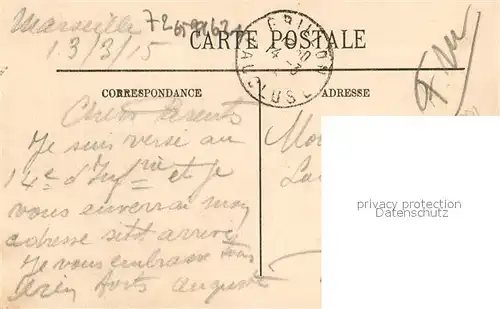 Marseille
13/3/15
CARTE POSTALE
F.M
CORRESPONDANCE
ADRESSE
Chers Parents
Je suis versé au
14e d'Inf-rie et Je
vous enverrai mon
adresse sitôt arrivé
Je vous embrasse tous
bien forts Auguste
privacy protection
Datenschutz